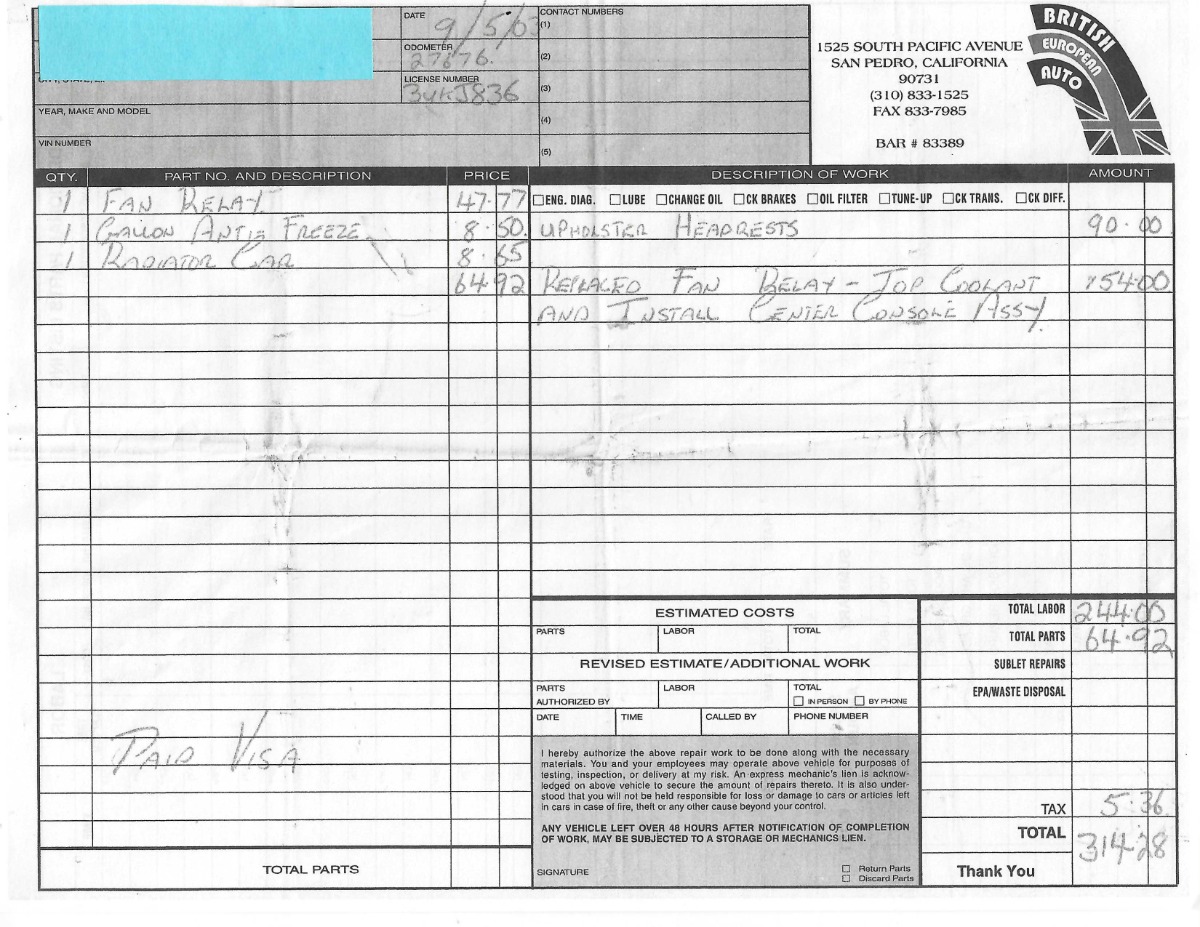 DATE 9/5/03
ODOMETER
27676.
LICENSE NUMBER
3YKJ836
YEAR, MAKE AND MODEL
VIN NUMBER
CONTACT NUMBERS
(1)
(2)
(3)
(4)
(5)
1525 SOUTH PACIFIC AVENUE
SAN PEDRO, CALIFORNIA
90731
(310) 833-1525
FAX 833-7985
BAR # 83389
BRITISH
EUROPEAN
AUTO
QTY. PART NO. AND DESCRIPTION PRICE DESCRIPTION OF WORK AMOUNT
1 FAN RELAY 47.77 ENG. DIAG. LUBE CHANGE OIL CK BRAKES OIL FILTER TUNE-UP CK TRANS. CK DIFF.
1 GALLON ANTIE FREEZE 8.50 UPHOLSTER HEADRESTS 90.00
1 RADIATOR CAR 8.65
64.92 REPLACED FAN RELAY - TOP COOLANT 154.00
AND INSTALL CENTER CONSOLE ASSY
ESTIMATED COSTS
PARTS LABOR TOTAL
REVISED ESTIMATE/ADDITIONAL WORK
PARTS LABOR TOTAL
AUTHORIZED BY IN PERSON BY PHONE
DATE TIME CALLED BY PHONE NUMBER
TOTAL LABOR 244.00
TOTAL PARTS 64.92
SUBLET REPAIRS
EPA/WASTE DISPOSAL
PAID VISA
I hereby authorize the above repair work to be done along with the necessary
materials. You and your employees may operate above vehicle for purposes of
testing, inspection, or delivery at my risk. An express mechanic's lien is acknow-
ledged on above vehicle to secure the amount of repairs thereto. It is also under-
stood that you will not be held responsible for loss or damage to cars or articles left
in cars in case of fire, theft or any other cause beyond your control.
ANY VEHICLE LEFT OVER 48 HOURS AFTER NOTIFICATION OF COMPLETION
OF WORK, MAY BE SUBJECTED TO A STORAGE OR MECHANICS LIEN.
SIGNATURE
Return Parts
Discard Parts
TAX 5.36
TOTAL 314.28
Thank You
TOTAL PARTS